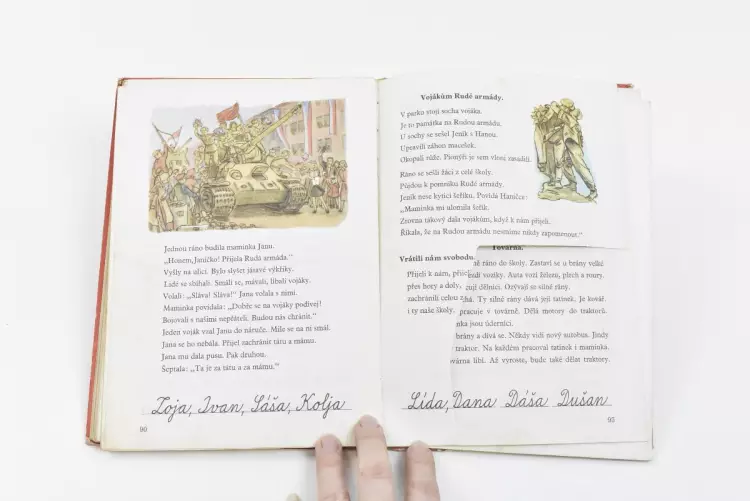 Jednou ráno budila maminka Janu.
„Honem, Janičko! Přijela Rudá armáda.“
Vyšly na ulici. Bylo slyšet jásavé výkřiky.
Lidé se sbíhali. Smáli se, mávali, líbali vojáky.
Volali: „Sláva! Sláva!“ Jana volala s nimi.
Maminka povídala: „Dobře se na vojáky podívej!
Bojovali s našimi nepřáteli. Budou nás chránit.“
Jeden voják vzal Janu do náruče. Mile se na ni smál.
Jana se ho nebála. Přijel zachránit tátu a mámu.
Jana mu dala pusu. Pak druhou.
Šeptala: „Ta je za tátu a za mámu.“
Zoja, Ivan, Sáša, Kolja
90
Vojákům Rudé armády.
V parku stojí socha vojáka.
Je to památka na Rudou armádu.
U sochy se sešel Jeník s Hanou.
Upravili záhon macešek.
Okopali růže. Pionýři je sem vloni zasadili.
Ráno se sešli žáci z celé školy.
Půjdou k pomníku Rudé armády.
Jeník nese kytici šeříku. Povídá Haničce:
„Maminka mi ulomila šeřík.
Zrovna takový dala vojákům, když k nám přijeli.
Říkala, že na Rudou armádu nesmíme nikdy zapomenout.“
Továrna.
Vrátili nám svobodu.
Přijeli k nám, přijeli
přes hory a doly,
zachránili celou
i ty naše školy.
ráno do školy. Zastaví se u brány velké
vozíky. Auta vozí železo, plech a roury.
dělníci. Ozývají se silné rány.
Ty silné rány dává její tatínek. Je kovář.
pracuje v továrně. Dělá motory do traktorů.
jsou úderníci.
brány a dívá se. Někdy vidí nový autobus. Jindy
traktor. Na každém pracoval tatínek i maminka.
líbí. Až vyroste, bude také dělat traktory.
Lída, Dana Dáša Dušan
95